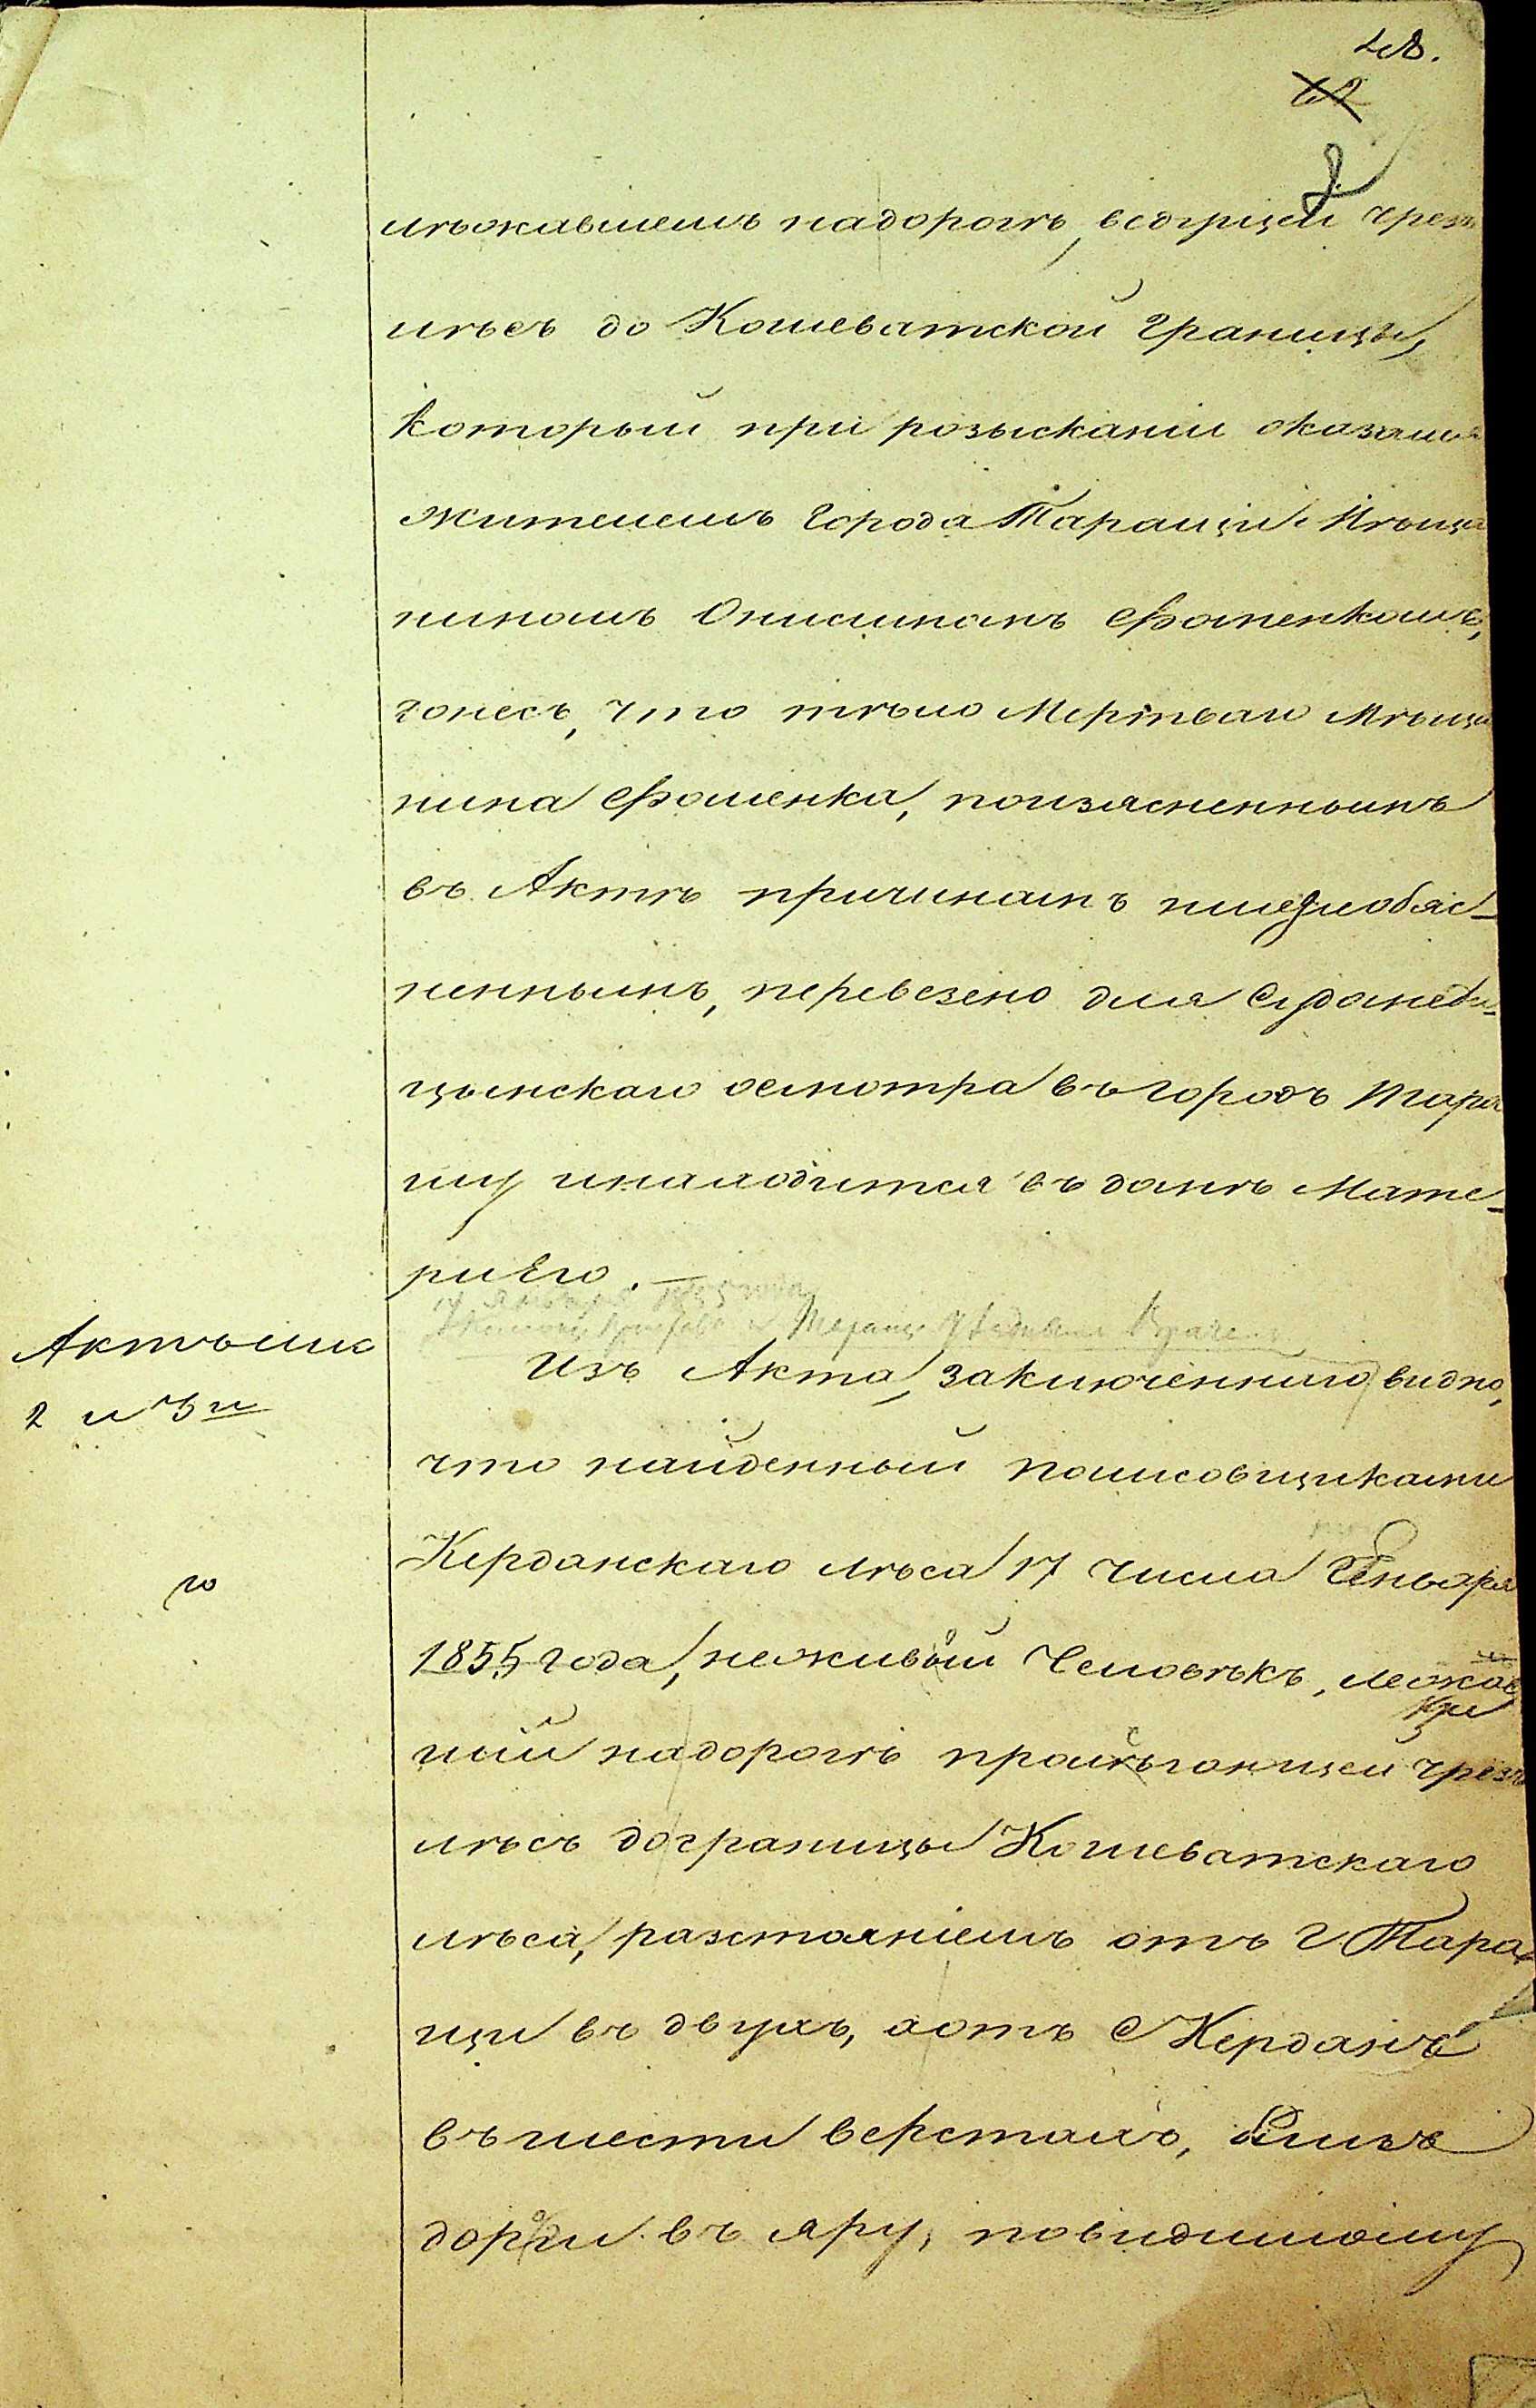 48.
лѣжавшемъ надорогѣ, ведущей чрезъ
лѣсъ до Кошеватской границы,
который при розысканіи оказался
жителемъ города Таращи Мѣща
ниномъ Онисимомъ Фоменкомъ,
донесъ, что тѣло Мертваго Мѣща
нина Фоменка, поизясненнымъ
въ Актѣ причинамъ
неннымъ, перевезено для Судомеди-
цынскаго осмотра въ городъ Тара
щу инаходится въ домѣ Мате-
ри Его. —
17 Января 1855 года
Таращ Уѣзднымъ Врачемъ
Изъ Акта, заключеннаго видно,
Актъ лис
2 и 3й
что найденный полисовщиками
Керданскаго лѣса 17 числа Генваря
1855 года, неживый Человѣкъ, лежав
шій надорогѣ пролѣгающей чрезъ
лѣсъ дограницы Кошеватскаго
лѣса, разстояніемъ отъ г. Тара
щи въ двухъ, аотъ с Керданъ
въ шести верстахъ, близъ
дороги въ яру, повидимому